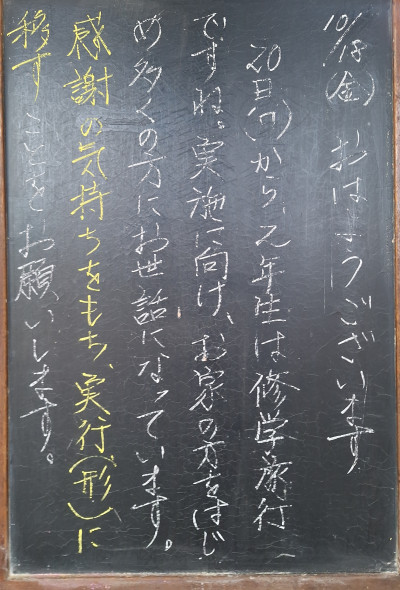 10/18(金) おはようございます
20日(日)から、2年生は修学旅行
ですね。実施に向け、お家の方をはじ
め多くの方にお世話になっています。
感謝の気持ちをもち、実行(形)に
移すことをお願いします。